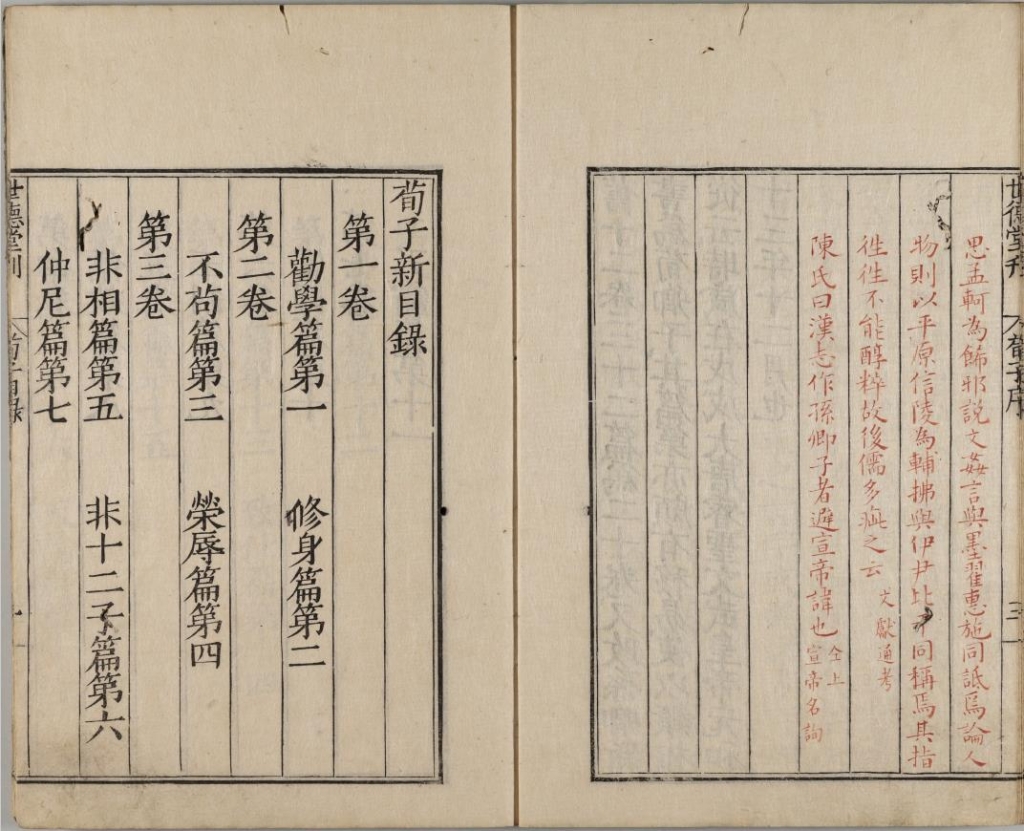 世德堂刊 荀子序 三
思孟軻為飾邪說文姦言與墨翟惠施同詆焉論人
物則以平原信陵為輔拂與伊尹比干同稱焉其指
徃徃不能醇粹故後儒多疵之云 文獻通考
陳氏曰漢志作孫卿子者避宣帝諱也 仝上 宣帝名詢
荀子新目錄
第一卷
勸學篇第一 修身篇第二
第二卷
不苟篇第三 榮辱篇第四
第三卷
非相篇第五 非十二子篇第六
仲尼篇第七
世德堂刊 荀子目錄 一